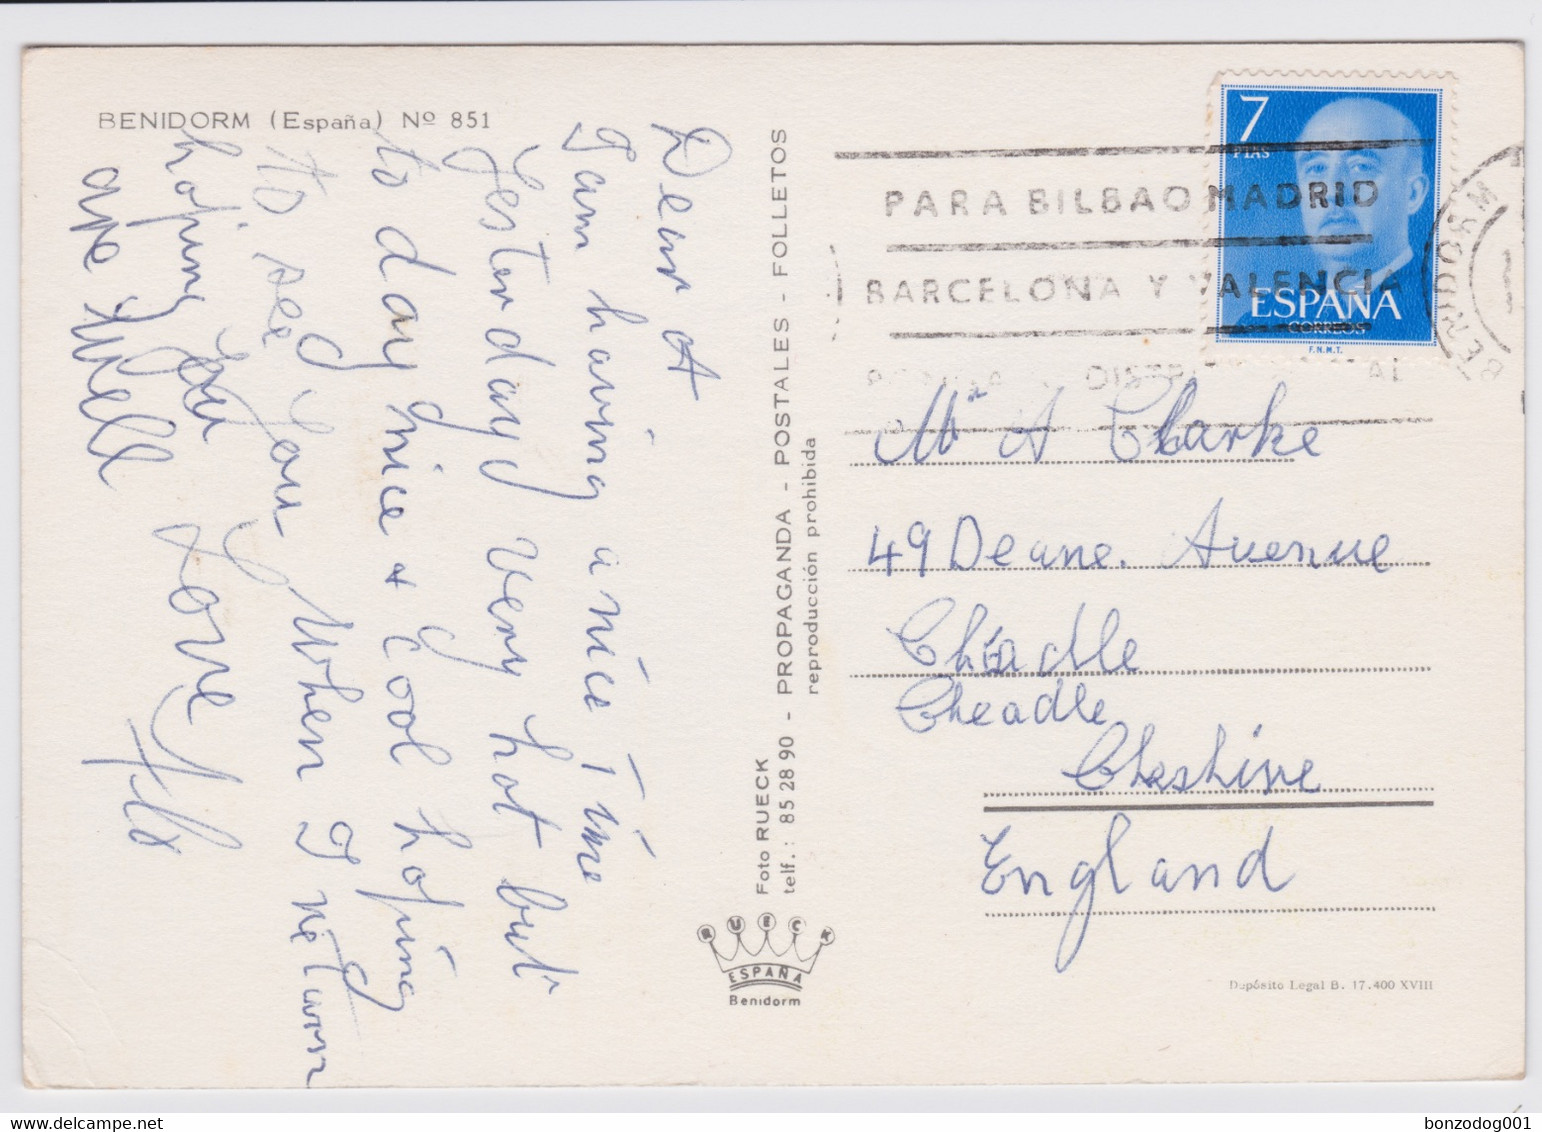 BENIDORM (España) Nº 851
Dear A
I am having a nice Time
yesterday Very hot but
to day nice + Cool hoping
to see you When I return
hoping you
are Well
Love
Flo
Foto RUECK
telf.: 85 28 90 - PROPAGANDA - POSTALES - FOLLETOS
reproducción prohibida
RUECK
ESPAÑA
Benidorm
7
PTAS
ESPAÑA
CORREOS
F.N.M.T.
PARA BILBAO MADRID
BARCELONA Y VALENCIA
BENIDORM
Mr A Clarke
49 Deane. Avenue
Cheadle
Cheadle
Cheshire
England
Depósito Legal B. 17.400 XVIII
bonzodog001